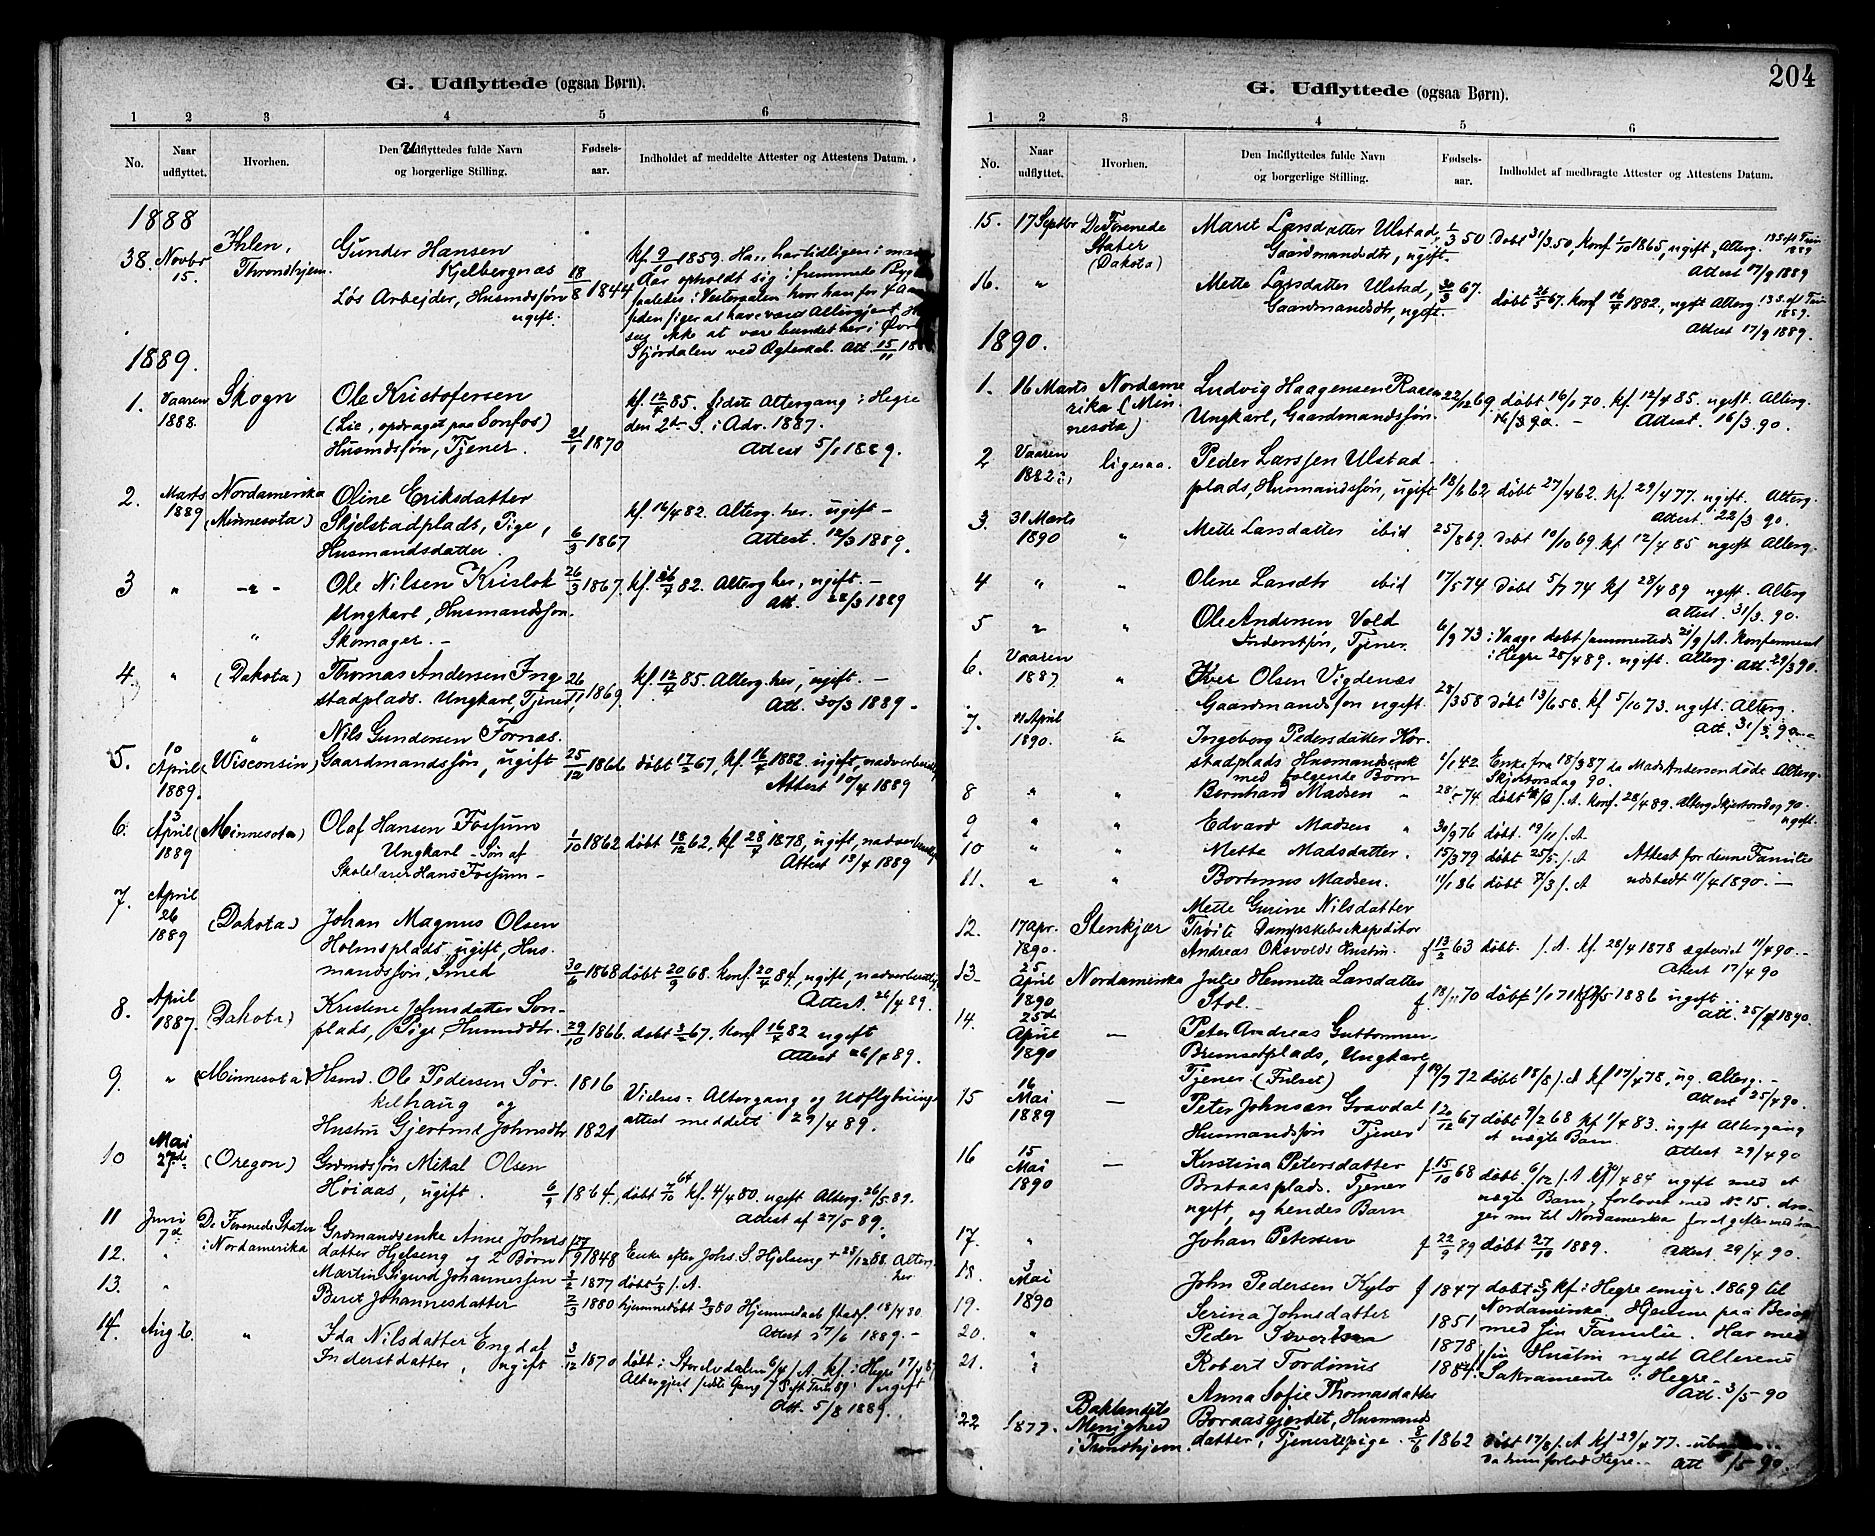 G. Udflyttede (ogsaa Børn).
1 2 3 4 5 6
No. Naar udflyttet. Hvorhen. Den Udflyttedes fulde Navn og borgerlige Stilling. Fødsels-aar. Indholdet af meddelte Attester og Attestens Datum.
1888
38. Novbr 15. Ihlen, Throndhjem Gunder Hansen
Kjelbergnæs
Løs Arbejder, Husmdsføn
ugift. 18/8 1844
kf. 9/10 1859. Han har tidligen i
Aar opholdt sig i fremmede
i Vesteraalen hvor han for
siden siger at have været Altergjæst
ikke at være bundet her i
Stjørdalen ved Ægteskab. Att. 15/11
1889.
1. Vaaren 1888. Skogn Ole Kristofersen
(Lie, opdraget paa Sonfos)
Husmdsføn, Tjener. 21/1 1870
kf. 12/4 85. sidste Altergang i Hegre
den 2den S. i Adv. 1887.
Attest 5/1 1889.
2. Marts 1889 Nordamerika (Minnesota) Oline Eriksdatter
Skjelstadplads, Pige,
Husmandsdatter. 6/3 1867
kf. 16/4 82. Alterg. her. ugift –
Attest. 12/3 1889.
3 " –"– Ole Nilsen Krislok 26/3 1867. kf. 16/4 82. Alterg her, ugift. –
Ungkarl, Husmandssøn Att. 28/3 1889
" Skomager. –
4. " (Dakota) Thomas Andersen Ing
stadplads. Ungkarl, Tjener, 26/11 1869. kf. 12/4 85. Alterg. her, ugift. –
Att. 30/3 1889 –
" Nils Gundersen Fornæs.
5. 10 April 1889. (Wisconsin) Gaardmandsføn, ugift 25/12 1866 døbt 17/2 67, kf. 16/4 1882 ugift
Attest 10/4 1889
6. 13 April 1889 (Minnesota) Olaf Hansen Fossum 1/10 1862 døbt 18/12 62, kf 28/4 1878, ugift,
Ungkarl – Søn af Attest 13/4 1889
Skolelærer Hans Fossum –
7. April 26 1889 (Dakota) Johan Magnus Olsen
Holmsplads, ugift, Hus
mandsføn, Smed 30/6 1868 døbt 20/9 68. konf. 20/4 84, ugift,
Attest. 26/4 89.
8. April 1887 (Dakota) Kristine Johnsdatter Son
plads, Pige, Husmdsdtr. 29/10 1866. døbt 3/2 67. konf 16/4 82 ugift
Attest 26/4 89.
9. " (Minnesota) Hsmd. Ole Pedersen Sør 1816
kelhaug og Vielses= Altergang og Udflytnings
Hustru Gjertrud Johnsdtr 1821 attest meddelt 29/4 89.
10 Mai 27de (Oregon) Grdmdssøn Mikal Olsen
Høiaas, ugift. 6/9 1864. døbt 7/10 64 kf. 4/4 80. ugift Alterg. 26/5 89.
Attest af 27/5 89.
11 Juni 7d De Forenede Stater i Nordamerika Grdmandsenke Anne Johns
datter Hjelseng og 2 Børn 1848 Enke efter Johs. S. Hjelseng + 25/12 68. Alterg. her
12. " Martin Sigurd Johannessen 3/2 1877 døbt 1/3 s. A.
13. " Beret Johannesdatter 2/3 1880 hjemmedøbt 2/3 80 Hjemmedaab stadf. 18/4 80.
Attest 27/6 1889. –
14. Aug 6. " Ida Nilsdatter Engdal
Inderstdatter, ugift 3/12 1870 døbt i Stordalen 6/1 f. A. kf. i Hegre
Altergjest sidste Gang 7 S. eft. Trin 89. ugift
Att. 5/8 1889.
204
G. Udflyttede (ogsaa Børn).
1 2 3 4 5 6
No. Naar udflyttet. Hvorhen. Den Indflyttedes fulde Navn og borgerlige Stilling. Fødsels-aar. Indholdet af medbragte Attester og Attestens Datum.
15. 17 Septbr De Forenede Stater (Dakota) Maret Larsdatter Ulstad, 1/3 50 døbt 31/3.50, konf. 1/10 1865, ugift, Alterg. 13 S. eft Trin 1889
Gaardmandsdtr, ugift. Attest 17/9 1889
16. " Mette Larsdatter Ulstad, 30/3 67. døbt 26/5 67. konf 16/4 1882, ugift Alterg. 13 S. eft Trin 1889.
Gaardmandsdtr, ugift. Attest 17/9 1889.
1890.
1. 16 Marts Nordamerika (Minnesota) Ludvig Haagensen Raaen 22/12 69. døbt 16/1 70. kf. 12/4 85. ugift. Alterg.
Ungkarl, Gaardmandsføn. 16/3 90. – Attest. 16/3. 90.
2 Vaaren 1882 ligesaa. Peder Larssen Ulstad
plads, Husmandsføn, ugift 18/6 62 døbt 27/4 62. kf. 29/4 77. ugift. Alterg.
Attest. 22/3 90.
3. 31 Marts 1890 " Mette Larsdatter ibid 25/8 69. døbt 10/10 69. kf. 12/4 85 ugift Alterg.
4 " " Oline Larsdtr ibid 17/5 74 døbt 5/7 74 kf 28/4 89 ugift. Alterg
Attest. 31/3. 90.
5 " " Ole Andersen Vold
Inderstføn, Tjener 6/9 73 i Vaage døbt sammesteds 21/9 s. A. konfirmeret
i Hegre 28/4 89. ugift. Alterg. Att. 29/3 90.
6. Vaaren 1887 " Iver Olsen Vigdenæs
Gaardmandsføn ugift. 28/3 58 døbt 13/6 58. kf 5/10 73. ugift. Alterg.
Att. 31/3 90
7. 11 April 1890. " Ingeborg Pedersdatter Kor
stadplads Husmandsenk 1/1 42 Enke fra 18/3 87 da Mads Anderson døde Alterg.
med følgende Børn Skjertorsdag 90.
8 " " Bernhard Madsen " 28/5 74. døbt s. A. konf. 28/4 89. Alterg. Skjertorsdag 90. ugift.
9 " " Edvard Madsen " 30/9 76 døbt. 19/11 s. A
10 " " Mette Madsdatter. 15/3 79 døbt 25/5 s. A Attest for denne Familie
11. " " Bortinus Madsen. 11/1 86 døbt 7/3 s. A udstedt 11/4 1890. –
12. 17 Apr. 1890. Stenkjær Mette Gurine Nilsdatter
Trøite Dampskibsekspeditør
Andreas Oksvolds Hustru f 13/2 63 døbt. s. A. kf. 28/4 1878 ægteviet 11/4 90. –
Attest 17/4 90
13 25 April 1890 Nordamerika Julie Hennette Larsdatter
Stol. f. 18/11 70 døbt 1/1 71 kf. 1886 ugift –
Att. 25/4 1890.
14. 25d April 1890 — Peter Andreas Guttormsen
Bremsetplads, Ungkarl
Tjener (Fulset) f 19/7 72 døbt 18/8 s. A kf 17/4 78, ug. Alterg. –
Attest 25/4 90.
15 16 Mai 1889 — Peter Johnsen Gravdal 20/12 67 døbt 9/2 68 kf 1/4 83. ugift Altergang
Husmandsføn Tjener et uægte Barn.
Attest 29/4 90
16 15 Mai 1890 — Kerstina Petersdatter f. 15/10 68 døbt 6/12 s. A kf 20/4 84 ugift med et
Brataasplads. Tjener uægte Barn, forlovet med No 15. dra
ugift, og hendes Barn ger nu til Nordamerika for at giftes med
17. " Johan Petersen f 22/9 89 døbt 27/10 1889. Attest 29/4 90.
18. 3 Mai 1890 John Pedersen Kylo f 1847 døbt og kf. i Hegre emigr. 1869 til
19. Serina Johnsdatter 1851 Nordamerika. Hjemme paa Besøg
20. " Peder 1878 med sin Familie. Har med
21. " Robert Tordinus 1884. sin Hustru nydt Alterens
Sakramente i Hegre –
Att. 3/5 90
22 1877. Baklandets Menighed i Trondhjem. Anna Sofie Thomasdatter
Boraasgjerdet, Husmands
datter, Tjenestepige. 8/6 1862 døbt 17/8 s. A kf 29/4 77.
da hun forlod Hegre. – Att 5/5 90.